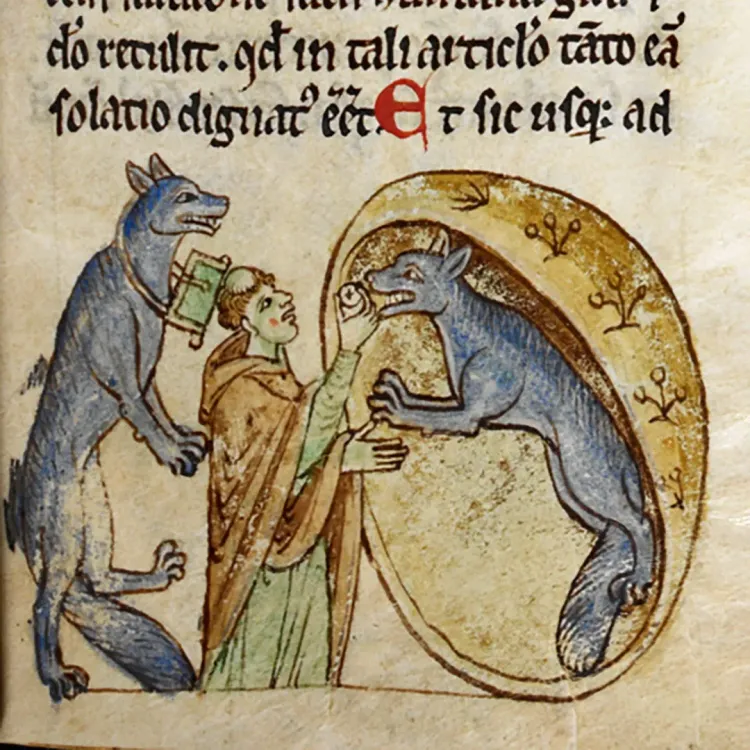 cl̄o retulit. qđ in tali articl̄o tāto eā
solatio dignatꝰ eēt. Et sic usq: ad